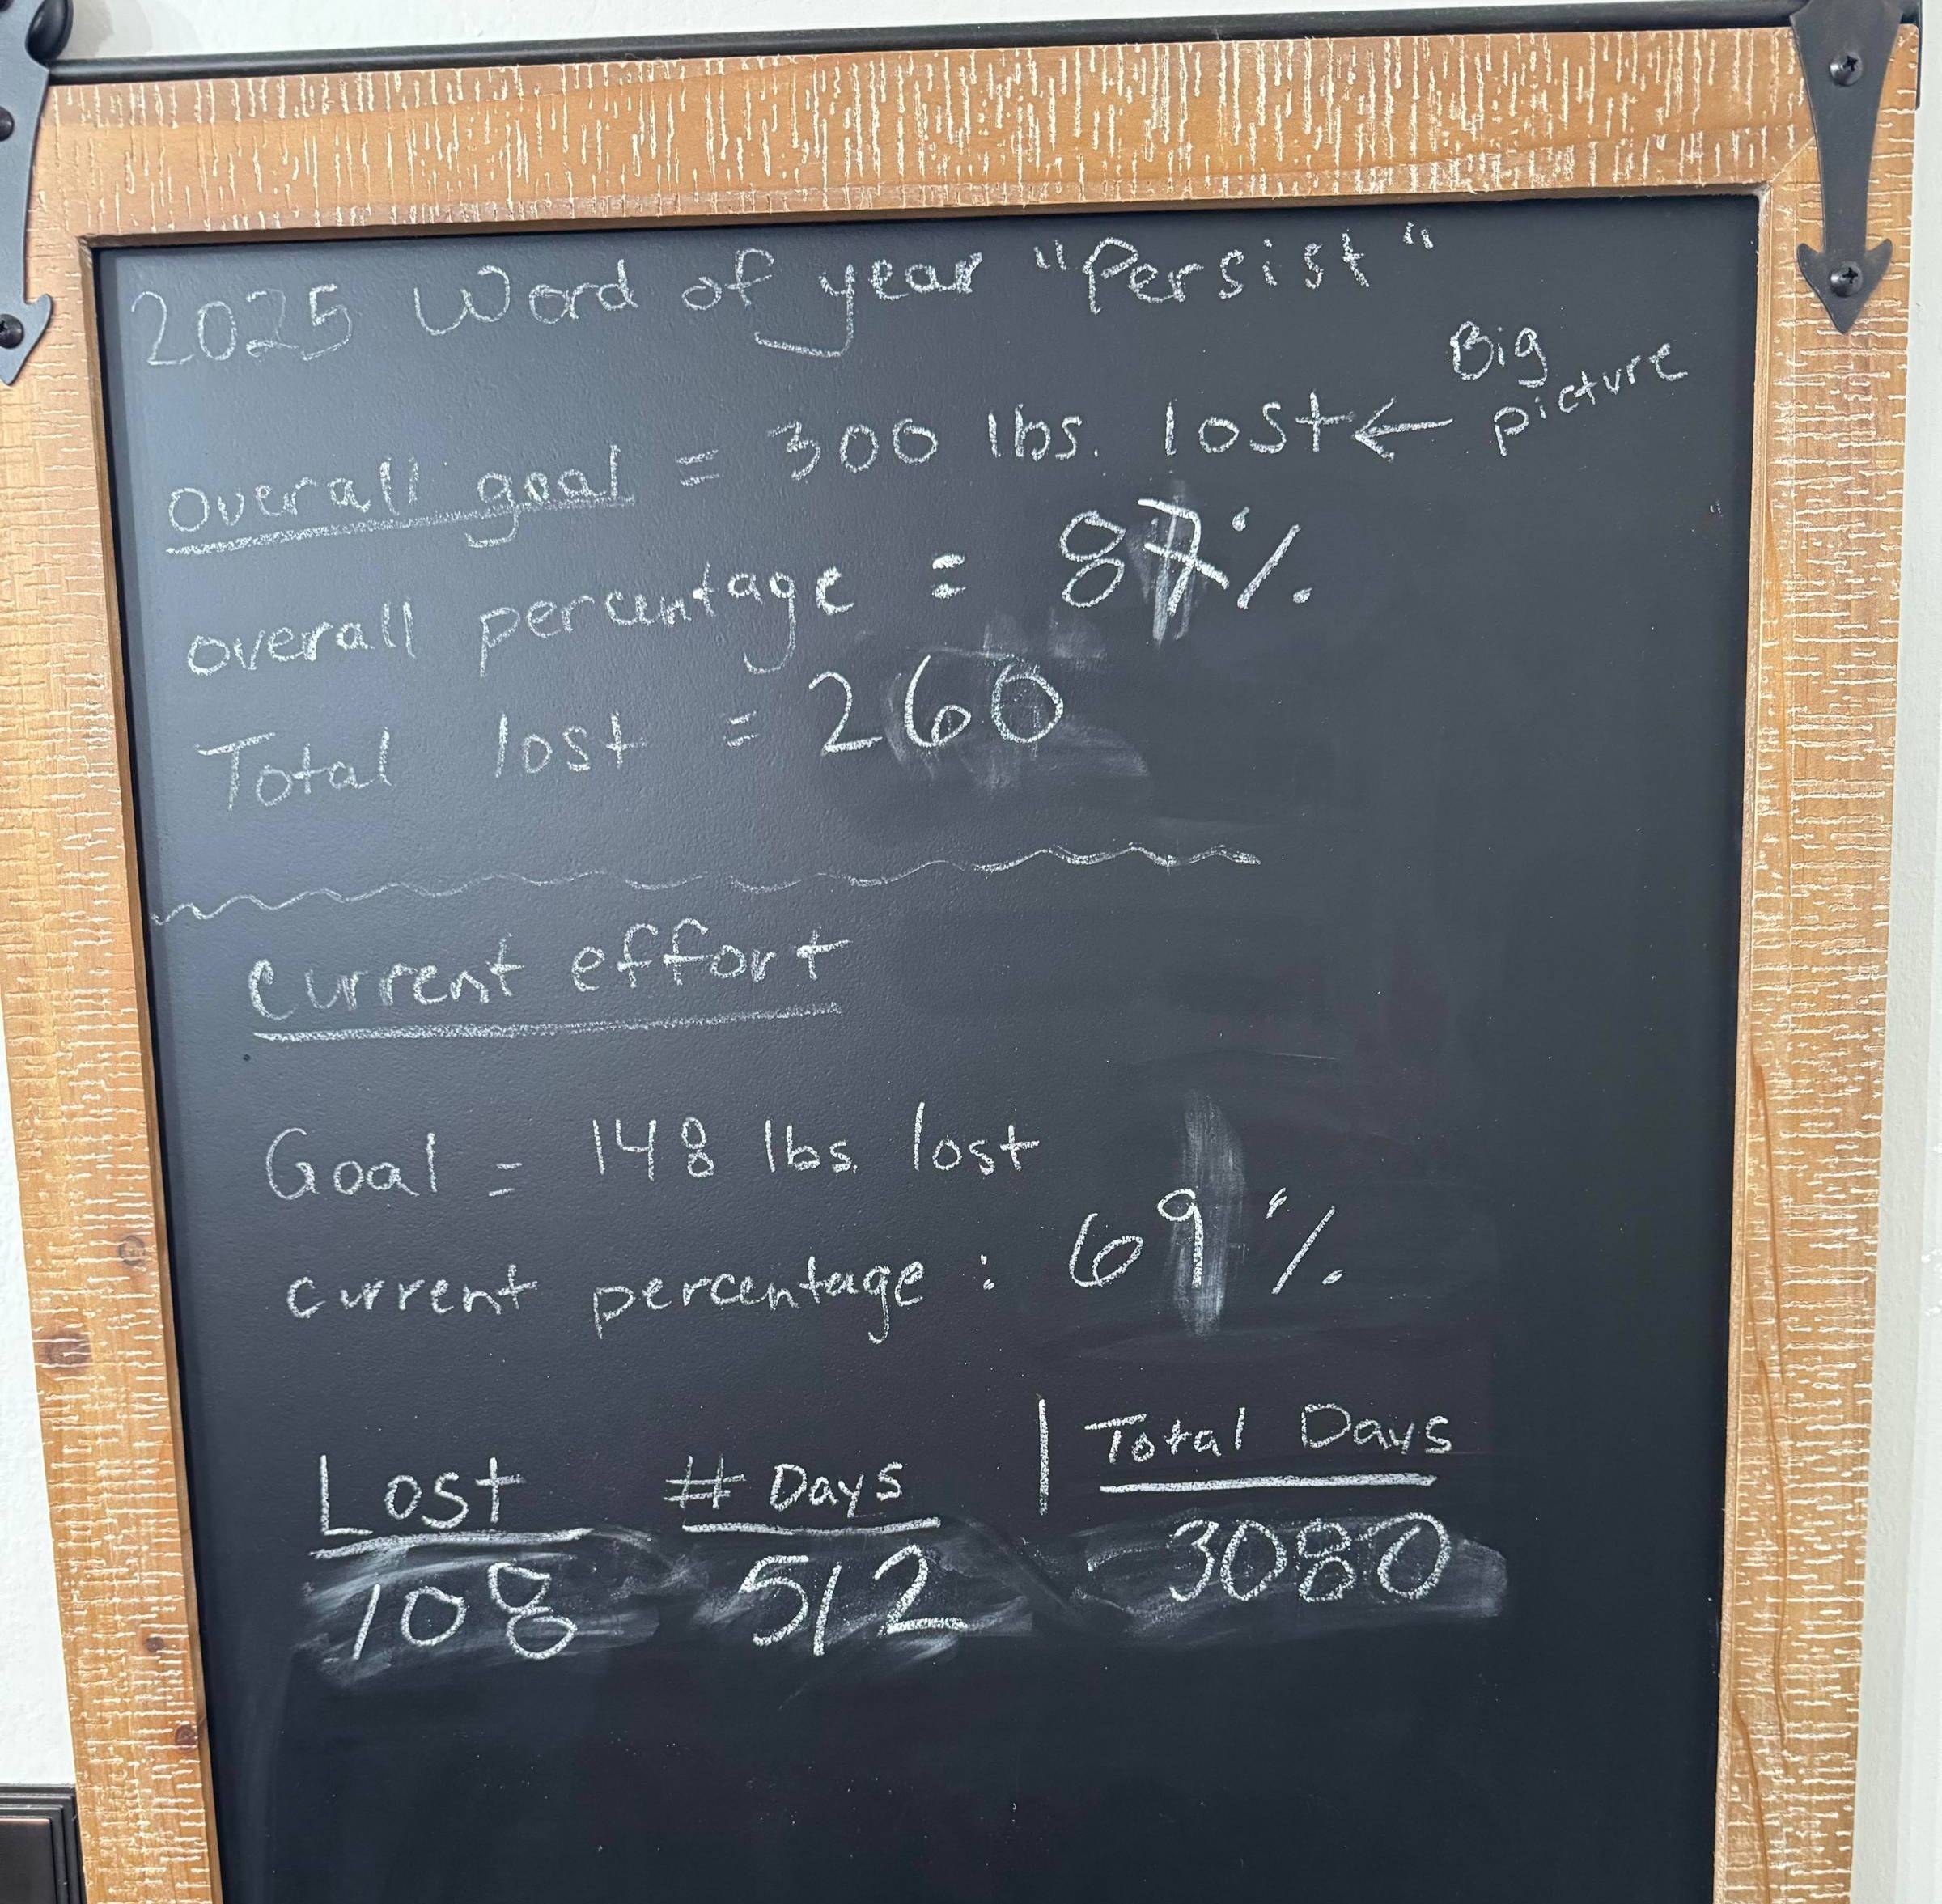 2025 Word of year "Persist"
Big
picture
overall goal = 300 lbs. lost ←
overall percentage = 87%
Total lost = 260
current effort
Goal = 148 lbs. lost
current percentage : 69%
Lost # Days | Total Days
108 512 3080